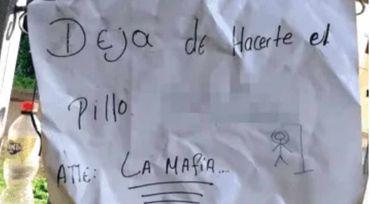 Deja de Hacerte el
Pillo
ATTE: LA MAFIA...